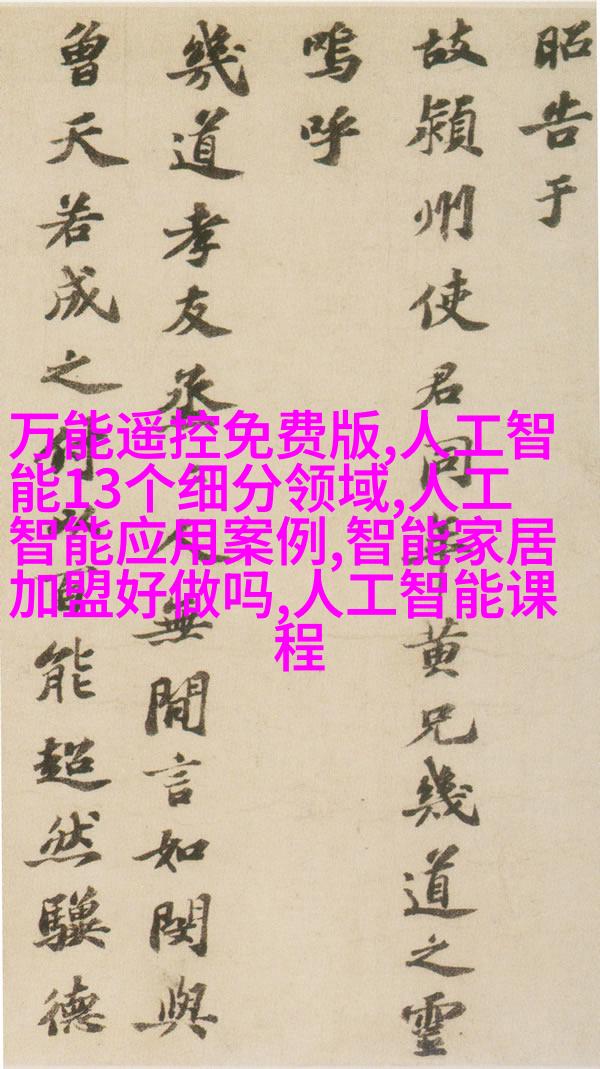 昭告于
故潁州使君同年黄兄幾道之靈
嗚呼
幾道孝友烝人無閒言如閔與
曾天若成之付以百能超然驥德
万能遥控免费版,人工智
能13个细分领域,人工
智能应用案例,智能家居
加盟好做吗,人工智能课
程